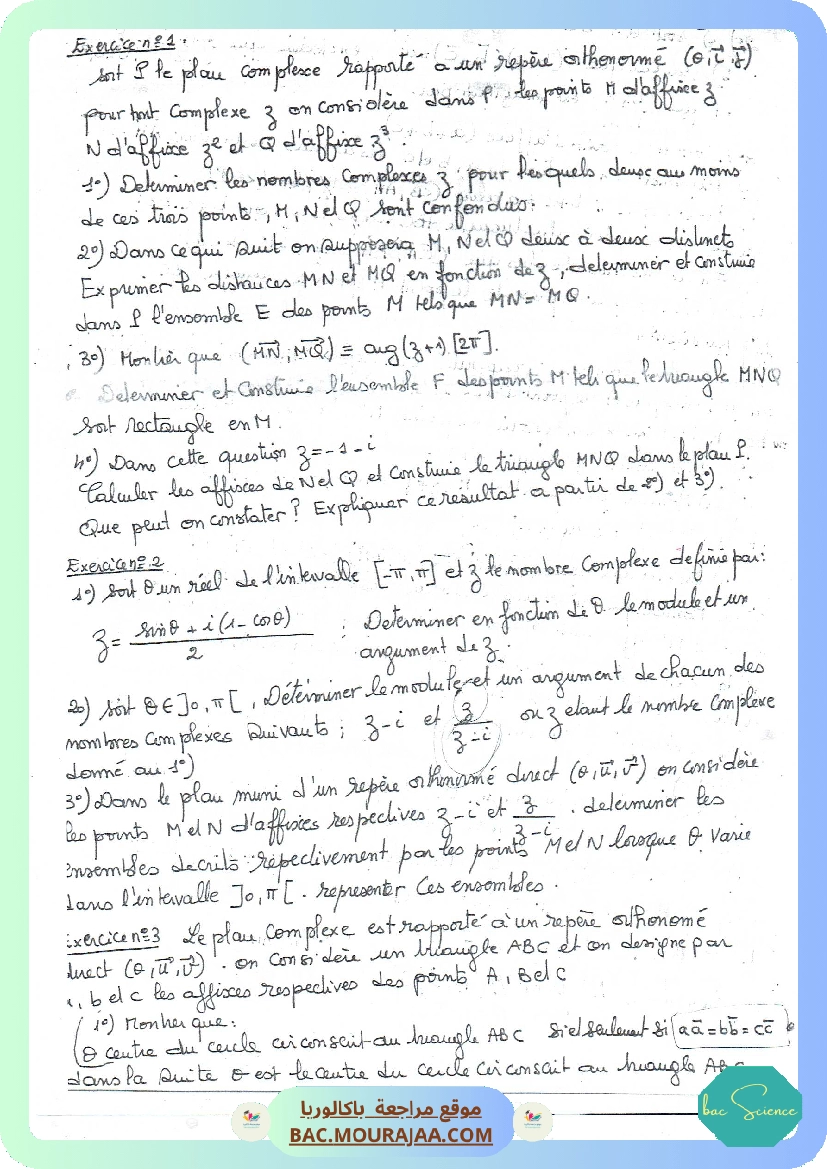 Exercice nº 1.
Soit P le plan complexe rapporté à un repère orthonormé (O, i, j)
pour tout complexe z on considère dans P les points M d'affixe z
N d'affixe z² et Q d'affixe z³.
1º) Determiner les nombres complexes z pour lesquels deux au moins
de ces trois points, M, N et Q sont confondus.
2º) Dans ce qui suit on supposera M, N et Q deux à deux distincts
Exprimer les distances MN et MQ en fonction de z, determiner et construire
dans P l'ensemble E des points M tels que MN = MQ.
3º) Montrer que (MN, MQ) ≡ arg(z+1) [2π].
Determiner et Construire l'ensemble F des points M tels que le triangle MNQ
soit rectangle en M.
4º) Dans cette question z = -1 - i
Calculer les affixes de N et Q et construire le triangle MNQ dans le plan P.
Que peut on constater ? Expliquer ce resultat a partir de 2º) et 3º).
Exercice nº 2
1º) Soit θ un réel de l'intervalle [-π, π] et z le nombre complexe definie par:
z = (sinθ + i(1 - cosθ)) / 2 ; Determiner en fonction de θ le module et un
argument de z.
2º) soit θ ∈ ]0, π[, Déterminer le module et un argument de chacun des
nombres complexes suivants ; z - i et z/(z - i) ou z etant le nombre complexe
donné au 1º)
3º) Dans le plan muni d'un repère orthonormé direct (O, u, v) on considère
les points M et N d'affixes respectives z - i et z/(z - i). determiner les
ensembles decrits repectivement par les points M et N lorsque θ varie
dans l'intervalle ]0, π[. representer ces ensembles.
Exercice nº 3 Le plan complexe est rapporté à un repère orthonomé
direct (O, u, v). on considère un triangle ABC et on designe par
a, b et c les affixes respectives des points A, B et C
1º) Montrer que:
O centre du cercle circonscrit au triangle ABC si et seulement si aā = bb̄ = cc̄
dans la suite O est le centre du cercle circonscrit au triangle ABC
موقع مراجعة باكالوريا
BAC.MOURAJAA.COM
bac Science